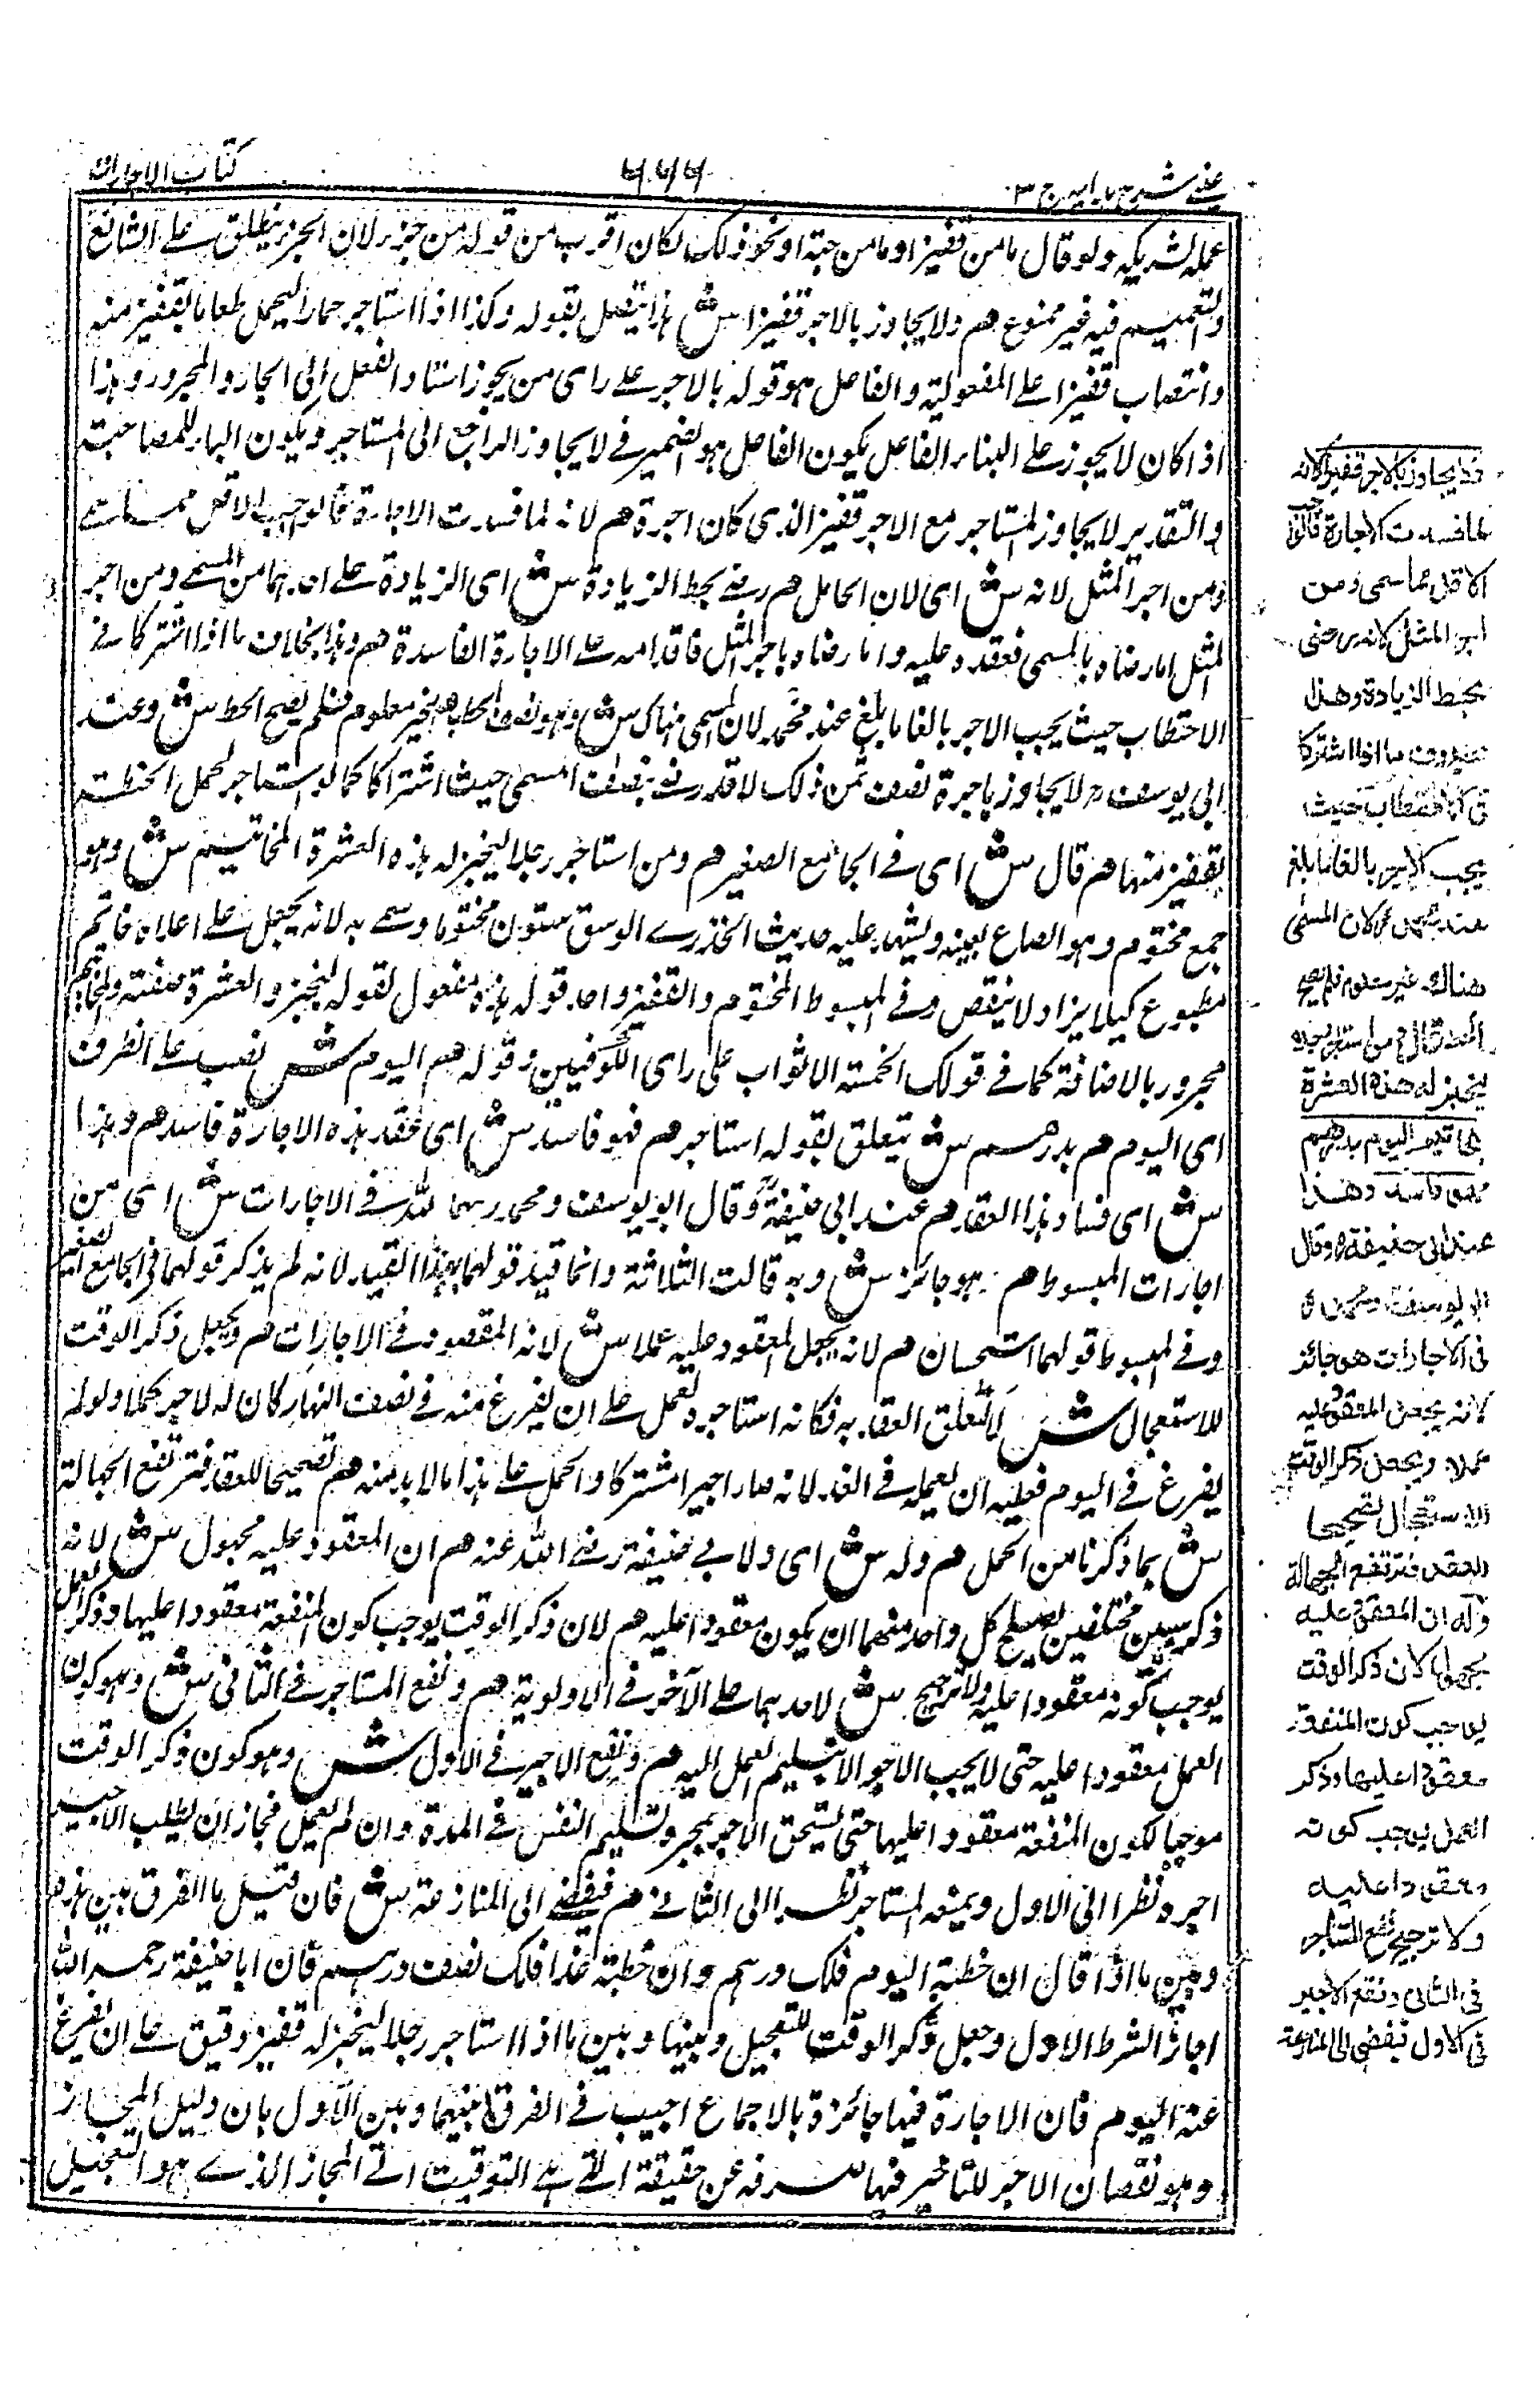 عينى شرح هدايه ج ٣
٧٧٧
كتاب الاجارات
عمله لشريكه ولو قال ما من قفيز او ما من حبة او نحو ذلك لكان اقرب من قوله من جزء لان الجزء ينطلق على الشائع
والتعميم فيه غير ممنوع هم ولا يجاوز بالاجر قفيزا ش هذا يتصل بقوله وكذا اذا استاجر حمارا ليحمل طعاما بقفيز منه
وانتصاب قفيزا على المفعولية والفاعل هو قوله بالاجر على راى من يجوز اسناد الفعل الى الجار والمجرور وهذا
اذا كان لا يجوز على البناء الفاعل يكون الفاعل هو الضمير فى لا يجاوز الراجع الى المستاجر ويكون الباء للمصاحبة
والتقدير لا يجاوز المستاجر مع الاجر قفيز الذى كان اجرة هم لانه لما فسدت الاجارة فالواجب الاقل مما سمى
ومن اجر المثل لانه ش اى لان الحامل هم رضى بحط الزيادة ش اى الزيادة على ان يهما من المسمى ومن اجر
المثل اما رضاه بالمسمى فعقده عليه واما رضاه باجر المثل فاقدامه على الاجارة الفاسدة هم وهذا بخلاف ما اذا اشتركا فى
الاحتطاب حيث يجب الاجر بالغا ما بلغ عند محمد لان المسمى هناك ش وهو نصف الحطب هم غير معلوم فلم يصح الحط ش وعند
ابى يوسف رح لا يجاوز باجرة نصف ثمن ذلك لا قد رضى بنصف المسمى حيث اشتراكا كما لو استاجر لحمل الحنطة
بقفيز منها هم قال ش اى فى الجامع الصغير هم ومن استاجر رجلا ليخبز له هذه العشرة المخاتيم ش وهو
جمع مختوم وهو الصاع بعينه ويشهد عليه حديث الخدرى الوسق ستون مختوما وسمى به لانه يجعل على اعلاه خاتم
مطبوع كيلا يزاد ولا ينقص وفى المبسوط المختوم والقفيز واحد قوله هذه مفعول لقوله ليخبز والعشرة صفته والمخاتيم
مجرور بالاضافة كما فى قولك الخمسة الاثواب على راى الكوفيين وقوله هم اليوم ش نصب على الظرف
اى اليوم هم بدرهم ش يتعلق بقوله استاجر هم فهو فاسد ش اى عقد هذه الاجارة فاسد هم وهذا
ش اى فساد هذا العقد هم عند ابى حنيفة وقال ابو يوسف ومحمد رحمهما الله فى الاجارات ش اى من
اجارات المبسوط هم هو جائز ش وبه قالت الثلاثة وانما قيد قولهما بهذا القيد لانه لم يذكر قولهما فى الجامع الصغير
وفى المبسوط قولهما استحسان هم لانه يجعل المعقود عليه عملا ش لانه المقصود فى الاجارات هم ويجعل ذكر الوقت
للاستعجال ش لا لتعلق العقد به فكانه استاجره لعمل على ان يفرغ منه فى نصف النهار كان له لاجر كملا ولو لم
يفرغ فى اليوم فعليه ان يعمله فى الغد لانه صار اجيرا مشتركا والحمل على هذا مالابد منه هم تصحيحا للعقد فترتفع الجهالة
ش بما ذكرنا من الحمل هم وله ش اى ولابى حنيفة رضى الله عنه هم ان المعقود عليه مجهول ش لانه
ذكر شيئين مختلفين يصلح كل واحد منهما ان يكون معقودا عليه هم لان ذكر الوقت يوجب كون المنفعة معقودا عليها وذكر العمل
يوجب كونه معقودا عليه ولا ترجيح ش لاحدهما على الآخر فى الاولوية هم ونفع المستاجر فى الثانى ش وهو كون
العمل معقودا عليه حتى لا يجب الاجر الا بتسليم العمل اليه هم ونفع الاجير فى الاول ش وهو كون ذكر الوقت
موجبا لكون المنفعة معقودا عليها حتى يستحق الاجر بمجرد تسليم النفس فى المدة وان لم يعمل فجاز ان يطلب الاجير
اجره نظرا الى الاول ويمنعه المستاجر نظرا الى الثانى هم فيفضى الى المنازعة ش فان قيل ما الفرق بين هذه
وبين ما اذا قال ان خطته اليوم فلك درهم وان خطته غدا فلك نصف درهم فان ابا حنيفة رحمه الله
اجاز الشرط الاول وجعل ذكر الوقت للتعجيل وبينها وبين ما اذا استاجر رجلا ليخبز له قفيز دقيق على ان يفرغ
عنه اليوم فان الاجارة فيها جائزة بالاجماع اجيب فى الفرق بينهما وبين الاول بان دليل المجاز
وهو نقصان الاجر للتاخير فيها صرفه عن حقيقة التى هى التوقيت الى المجاز الذى هو التعجيل
ولا يجاوز بالاجر قفيزا لانه
لما فسدت الاجارة فالواجب
الاقل مما سمى ومن
اجر المثل لانه رضى
بحط الزيادة وهذا
بخلاف ما اذا اشتركا
فى الاحتطاب حيث
يجب الاجر بالغا ما بلغ
عند محمد لان المسمى
هناك غير معلوم فلم يصح
الحط قال ومن استاجر رجلا
ليخبز له هذه العشرة
المخاتيم اليوم بدرهم
فهو فاسد وهذا
عند ابى حنيفة وقال
ابو يوسف ومحمد
فى الاجارات هو جائز
لانه يجعل المعقود عليه
عملا ويجعل ذكر الوقت
للاستعجال تصحيحا
للعقد فترتفع الجهالة
وله ان المعقود عليه
مجهول لان ذكر الوقت
يوجب كون المنفعة
معقودا عليها وذكر
العمل يوجب كونه
معقودا عليه
ولا ترجيح ونفع المستاجر
فى الثانى ونفع الاجير
فى الاول فيفضى الى المنازعة